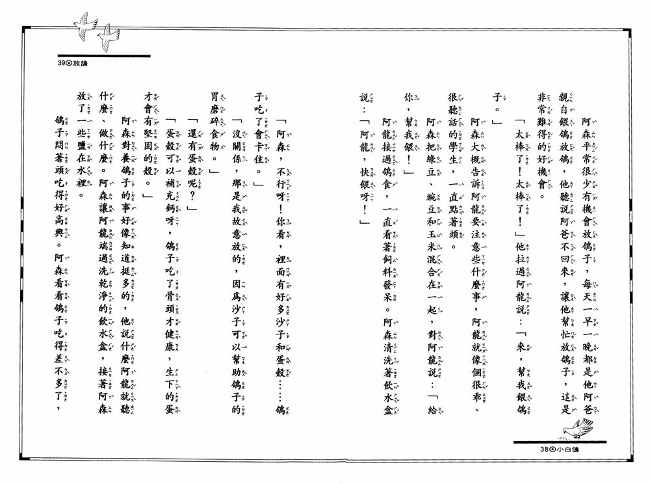 阿森平常很少有機會放鴿子，每天一早一晚都是他阿爸
親自餵鴿放鴿，他聽說阿爸不回來，讓他幫忙放鴿子，這是
非常難得的好機會。
「太棒了！太棒了！」他拉過阿龍說：「來，幫我餵鴿
子。」
阿森大概告訴阿龍要注意些什麼事，阿龍就像個很乖、
很聽話的學生，一直點著頭。
阿森把綠豆、豌豆和玉米混合在一起，對阿龍說：「給
你，幫我餵！」
阿龍接過鴿食，一直看著飼料發呆。阿森清洗著飲水盒
說：「阿龍，快餵呀！」
38⊙小白鴿
39⊙放鴿
「阿森，不行呀！你看，裡面有好多沙子和蛋殼……鴿
子吃了會卡住。」
「沒關係，那是我故意放的，因為沙子可以幫助鴿子的
胃磨碎食物。」
「還有蛋殼呢？」
「蛋殼可以補充鈣呀，鴿子吃了骨頭才健康，生下的蛋
才會有堅固的殼。」
阿森對養鴿子的事好像知道挺多的，他說什麼阿龍就聽
什麼、做什麼。阿森讓阿龍端過洗乾淨的飲水盒，接著阿森
放了一些鹽在水裡。
鴿子悶著頭吃得好高興。阿森看看鴿子吃得差不多了，